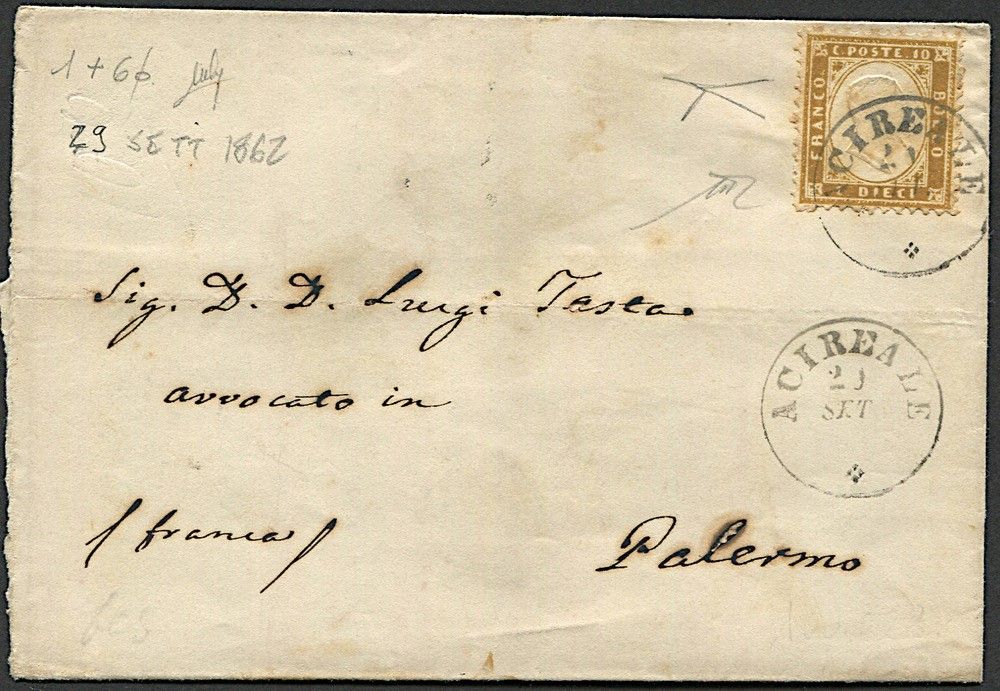 1 + 6
29 SETT 1862
C. POSTE 10
FRANCO
BOLLO
DIECI
ACIREALE
Sig. D. D. Luigi Testa
avvocato in
(franca)
Palermo
ACIREALE
SET